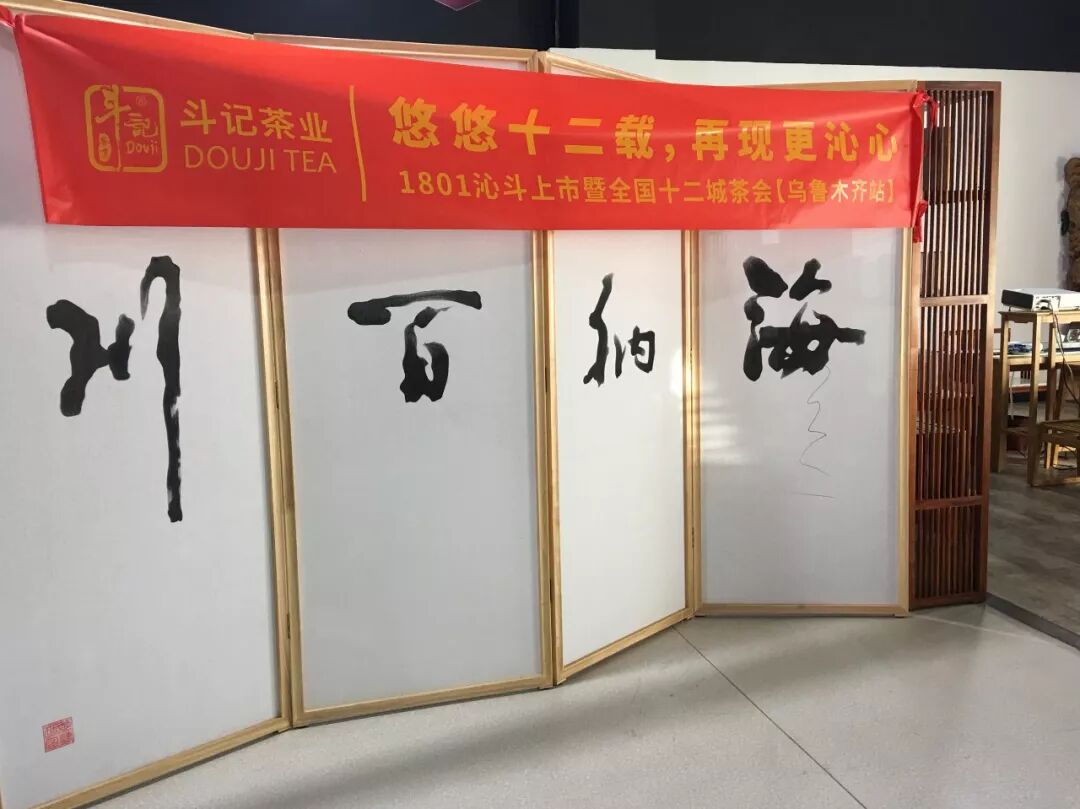 斗記
Douji
斗记茶业
DOUJI TEA
悠悠十二载,再现更沁心
1801沁斗上市暨全国十二城茶会【乌鲁木齐站】
海纳百川